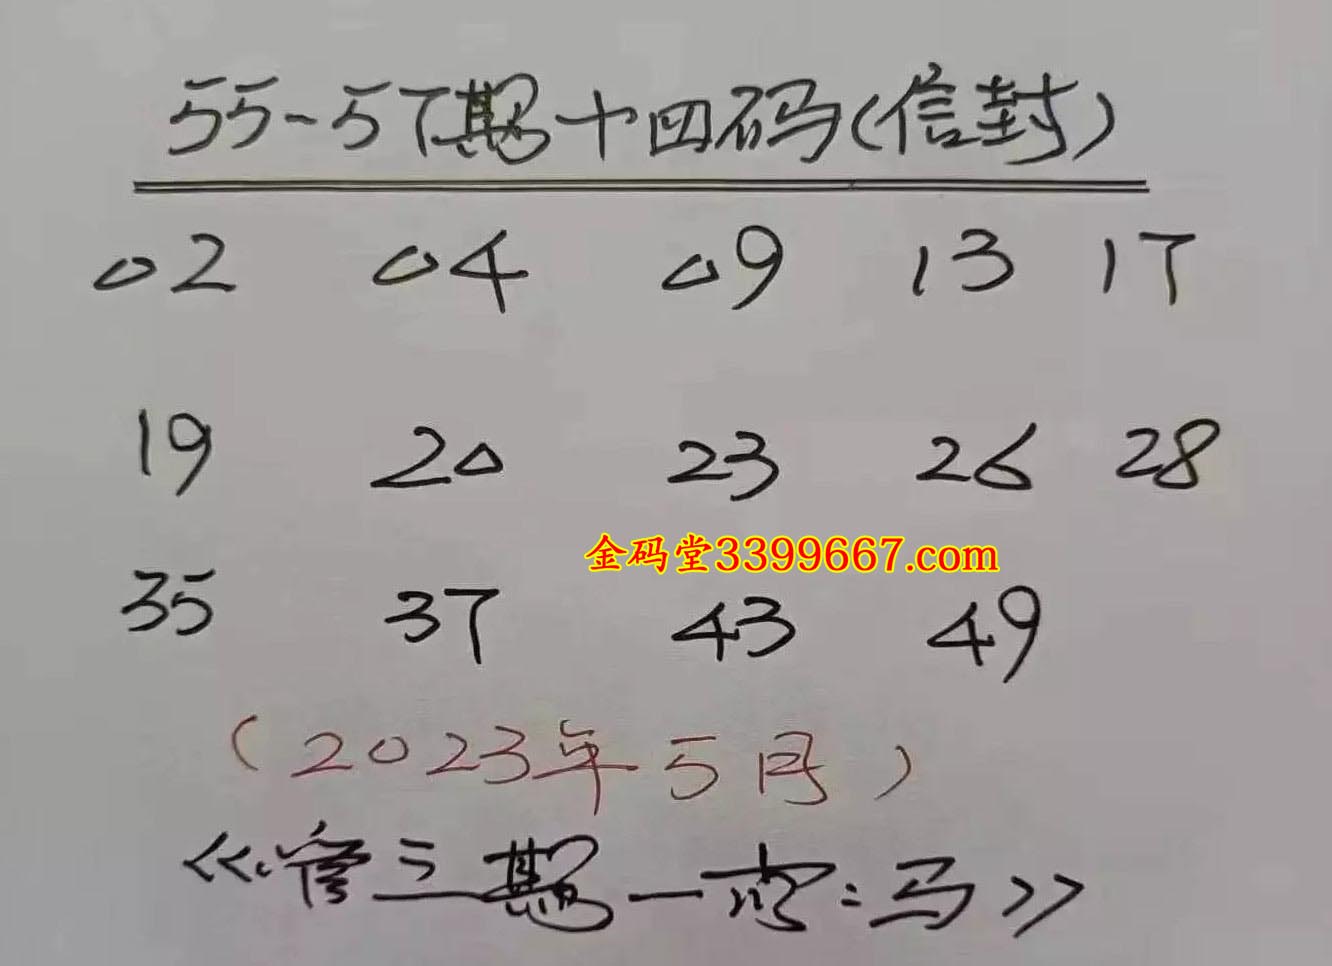 55-57期十四码(信封)
02 04 09 13 17
19 20 23 26 28
金码堂3399667.com
35 37 43 49
(2023年5月)
《管三期一肖:马》